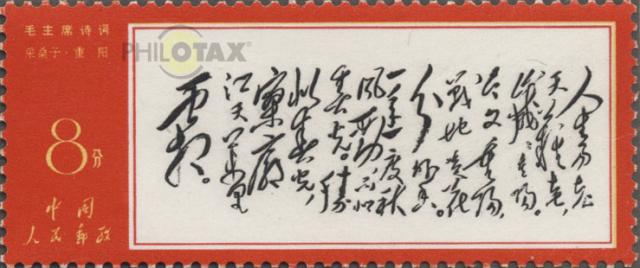 毛主席诗词
采桑子·重阳
PHILOTAX®
8分
中国
人民郵政
人生易老
天难老，
岁岁重阳。
今又重阳，
战地黄花
分外香。
一年一度秋
风劲，不似
春光。胜
似春光，
寥廓
江天万里
霜。